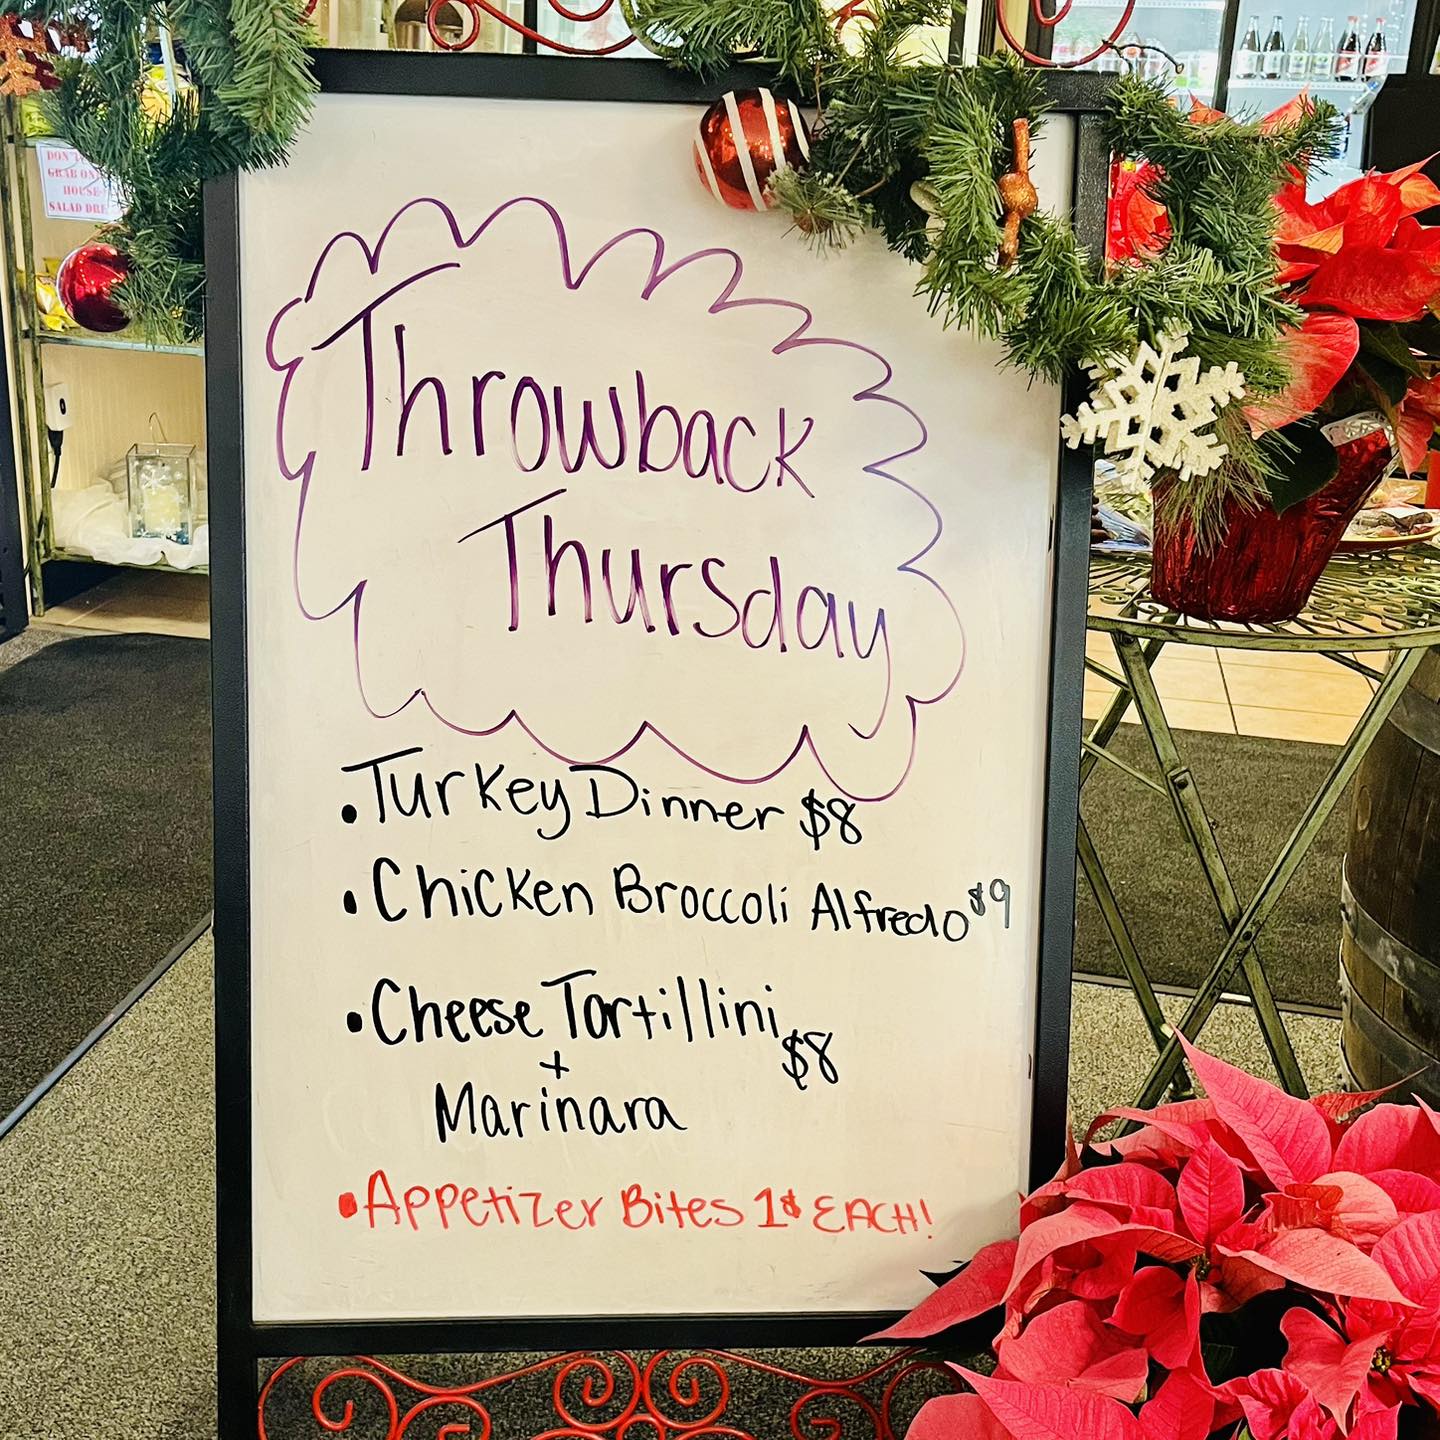 DON'T
GRAB ON
HOUSE
SALAD DRE
Throwback
Thursday
• Turkey Dinner $8
• Chicken Broccoli Alfredo $9
• Cheese Tortillini $8
+
Marinara
• Appetizer Bites 1$ EACH!